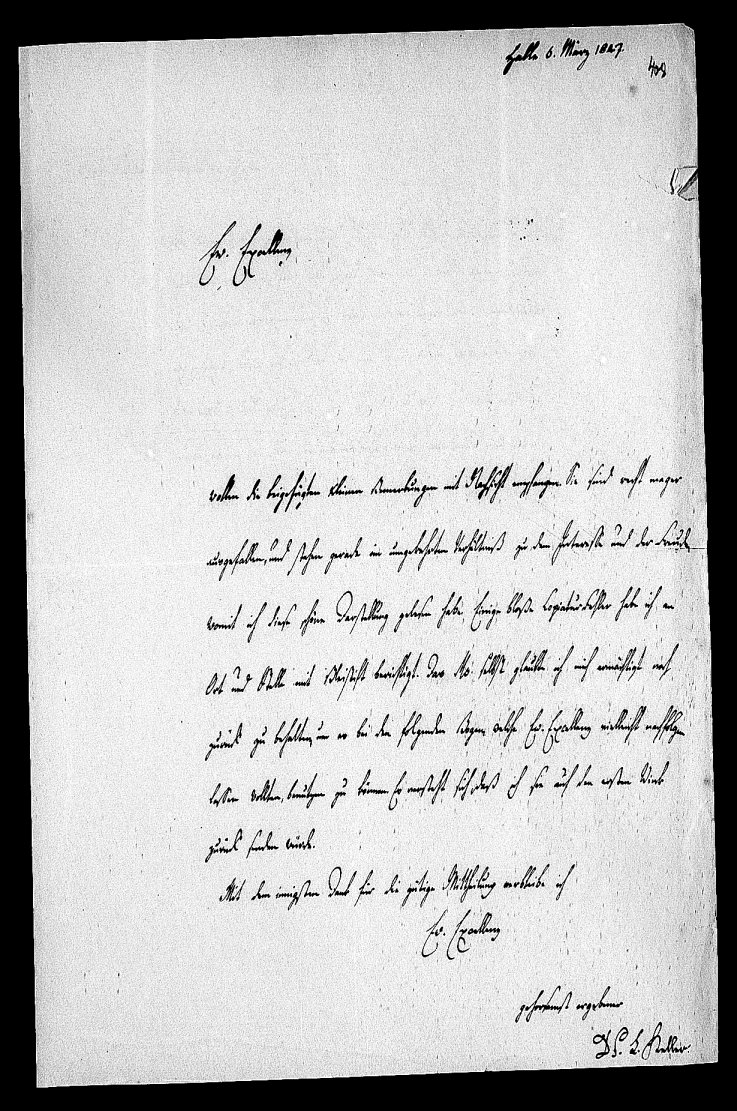 Halle 6. März 1827.
408
Ew. Excellenz
wollen die beigefügten kleinen Bemerkungen mit Nachsicht empfangen. Sie sind recht mager
ausgefallen, und stehen gerade im umgekehrten Verhältniß zu dem Interesse und der Freude
womit ich diese schöne Darstellung gelesen habe. Einige bloße Copiatur-Fehler habe ich an
Ort und Stelle mit Bleistift berichtigt. Das Ms. selbst glaubte ich mich ermächtigt noch
zurück zu behalten, um es bei den folgenden Bogen, welche Ew. Excellenz vielleicht nachfolgen
lassen wollten, benutzen zu können. Es versteht sich, daß ich sie auf den ersten Wink
zurück senden würde.
Mit dem innigsten Dank für die gütige Mittheilung verbleibe ich
Ew. Excellenz
gehorsamst ergebener
L. Keller